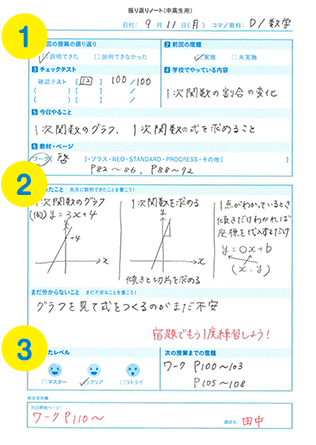 振り返りノート(中高生用)
日付: 9月11日(月) コマ/教科: D/数学
1
回の授業の振り返り
☑説明できた □説明できなかった
2 前回の宿題
☑実施 □未実施
3 チェックテスト
確認テスト [12] 100/100
( )[ ] /
( )[ ] /
4 学校でやっている内容
1次関数の割合の変化
5 今日やること
1次関数のグラフ、1次関数の式を求めること
6 教材・ページ
ワーク( 啓 )・プラス・NEO・STANDARD・PROGRESS・その他( )
P82~86, P88~92
2
たこと 先生に説明できたことを書こう!
1次関数のグラフ
(例) y=3x+4
-4
x
1次関数を求める
x
傾きと切片を求める
1点がわかっているとき
傾きだけわかれば
座標を代入するだけ
y=ax+b
(x, y)
まだ分からないこと まだ不安なことを書こう!
グラフを見て式をつくるのがまだ不安
宿題でもう1度練習しよう!
3
たレベル
□マスター ☑クリア □リトライ
次の授業までの宿題
ワーク P100~103
P105~108
次回開始ページ
ワーク P110~
講師名: 田中